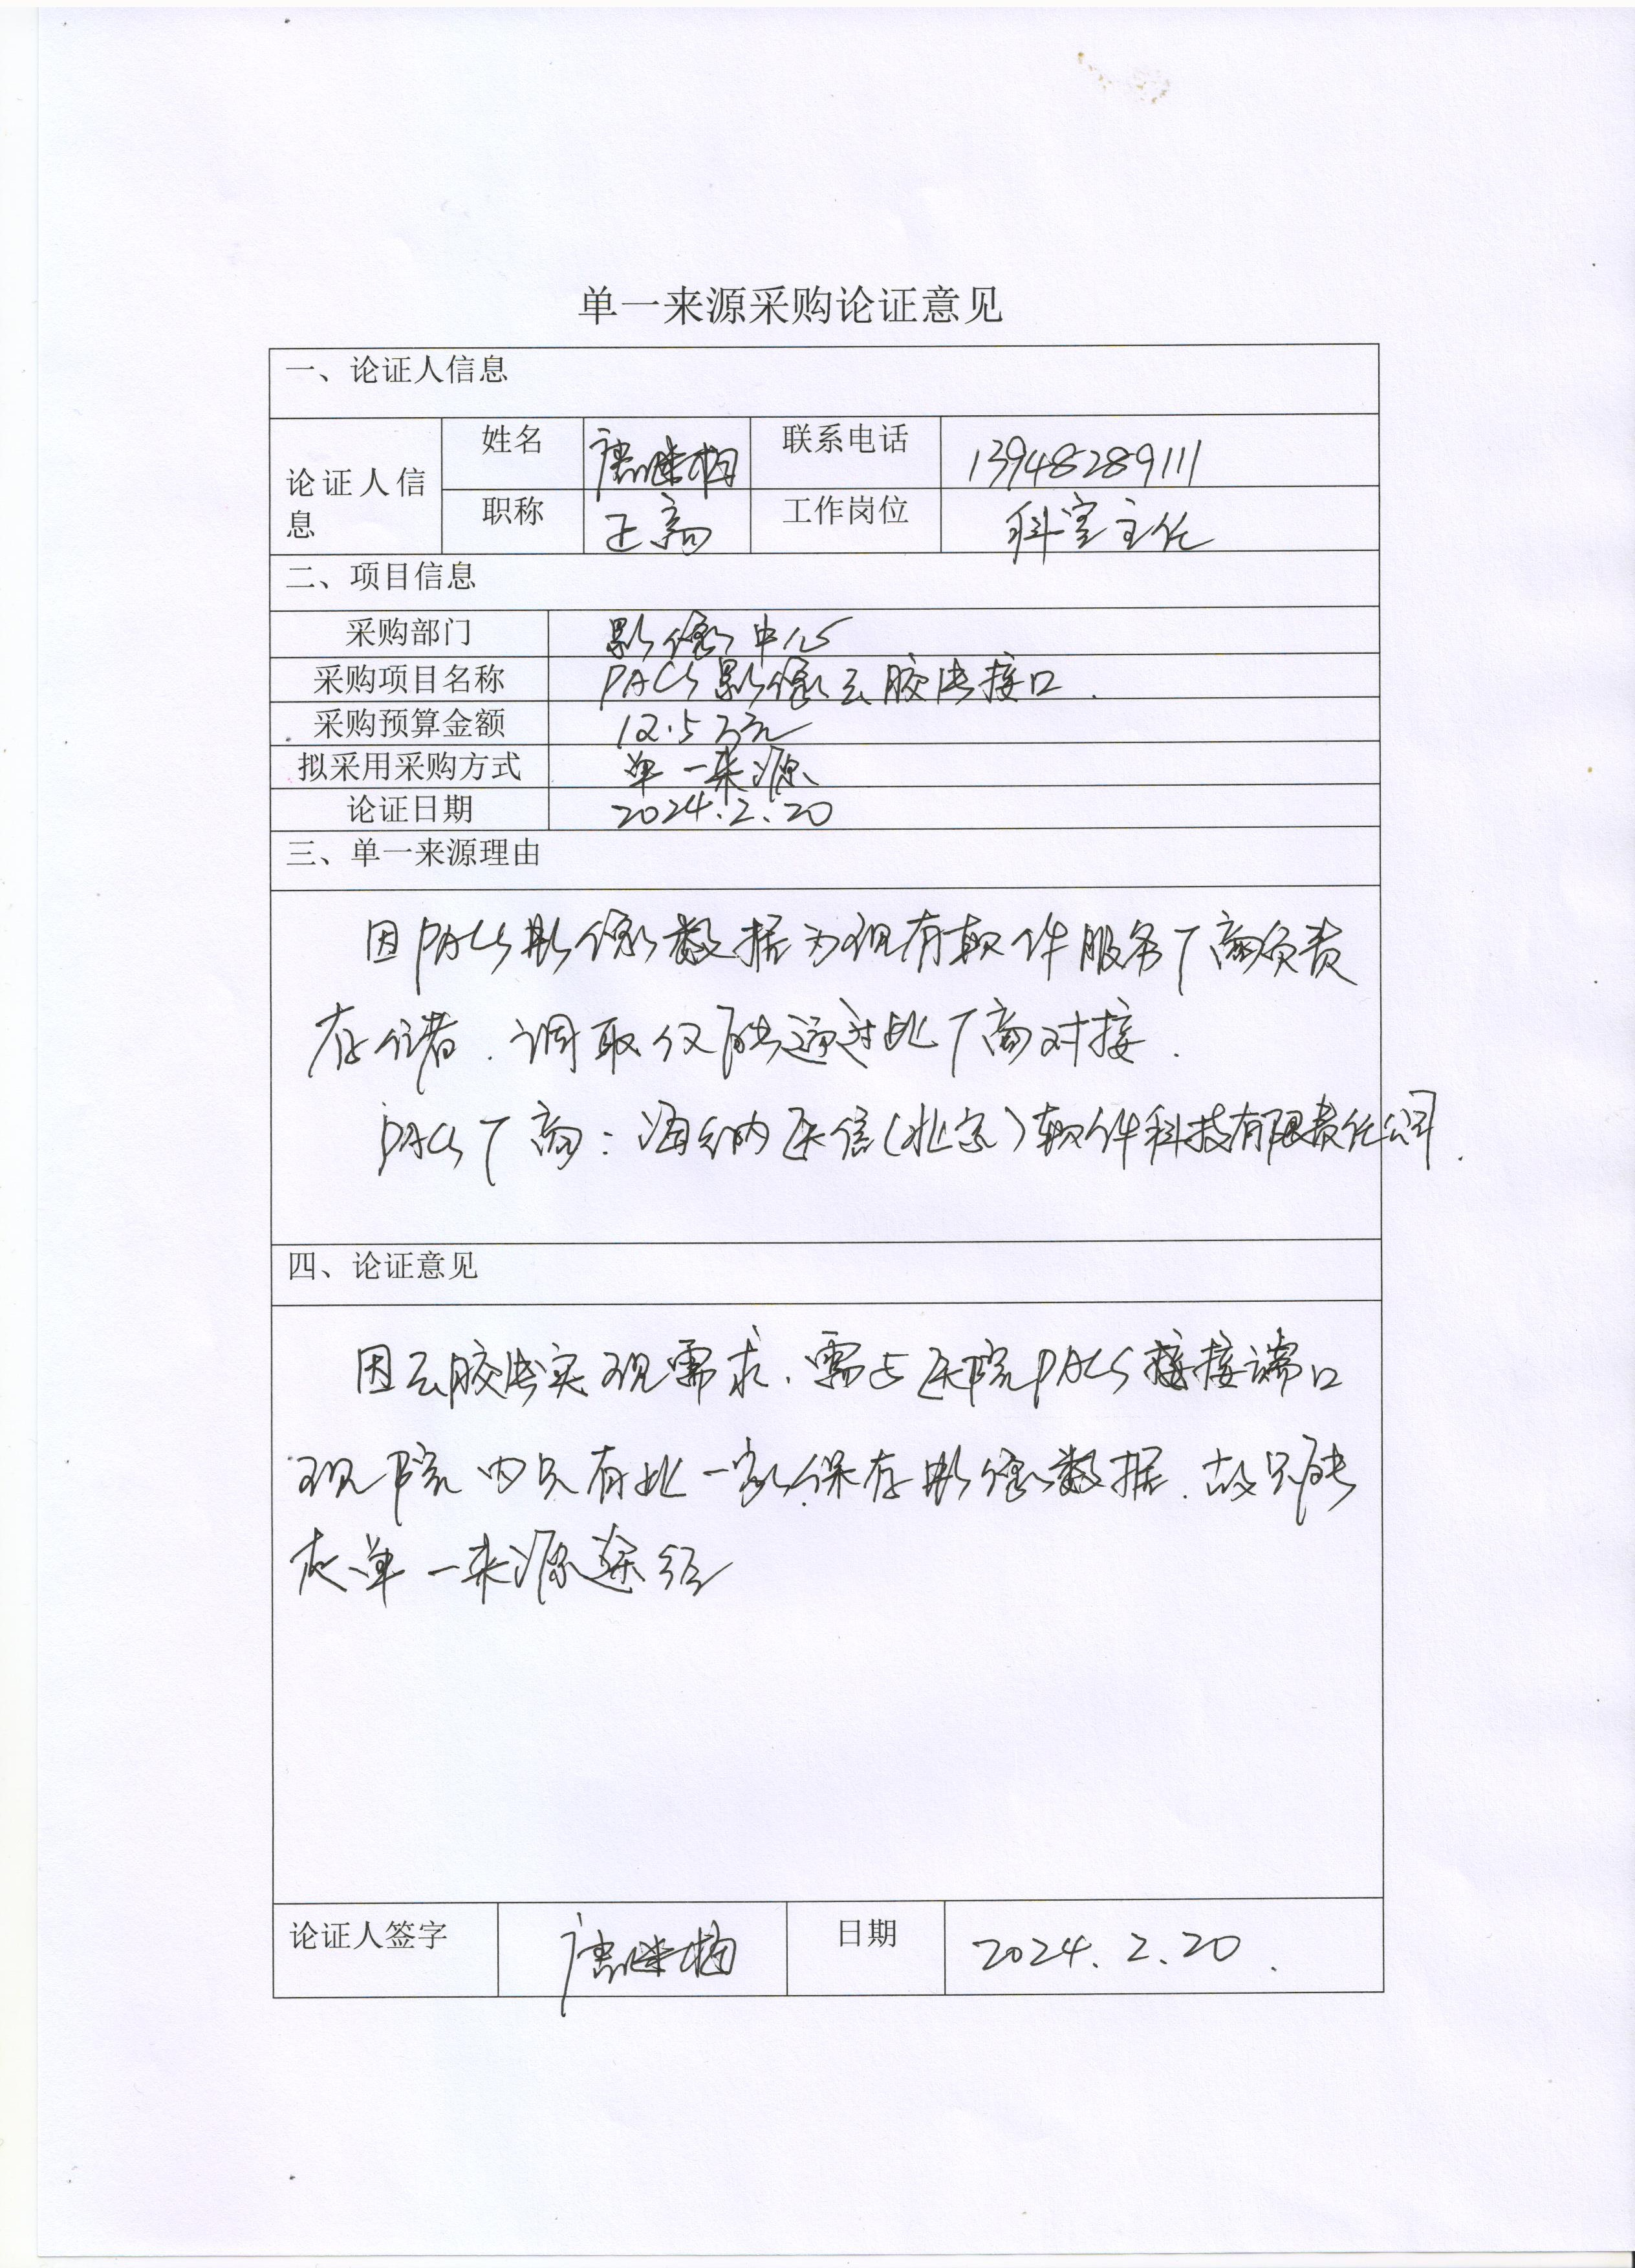 单一来源采购论证意见
一、论证人信息
论证人信息
姓名
联系电话 13948289111
职称 正高
工作岗位 科室主任
二、项目信息
采购部门 影像中心
采购项目名称 PACS影像云胶片接口.
采购预算金额 12.5万元
拟采用采购方式 单一来源
论证日期 2024.2.20
三、单一来源理由
因PACS影像数据为现有软件服务厂商负责
存储.调取仅能通过此厂商对接.
PACS厂商:海纳医信(北京)软件科技有限责任公司.
四、论证意见
因云胶片实现需求、需与医院PACS接端口
现医院内只有此一家保存影像数据.故只能
走单一来源途径
论证人签字
日期 2024.2.20.